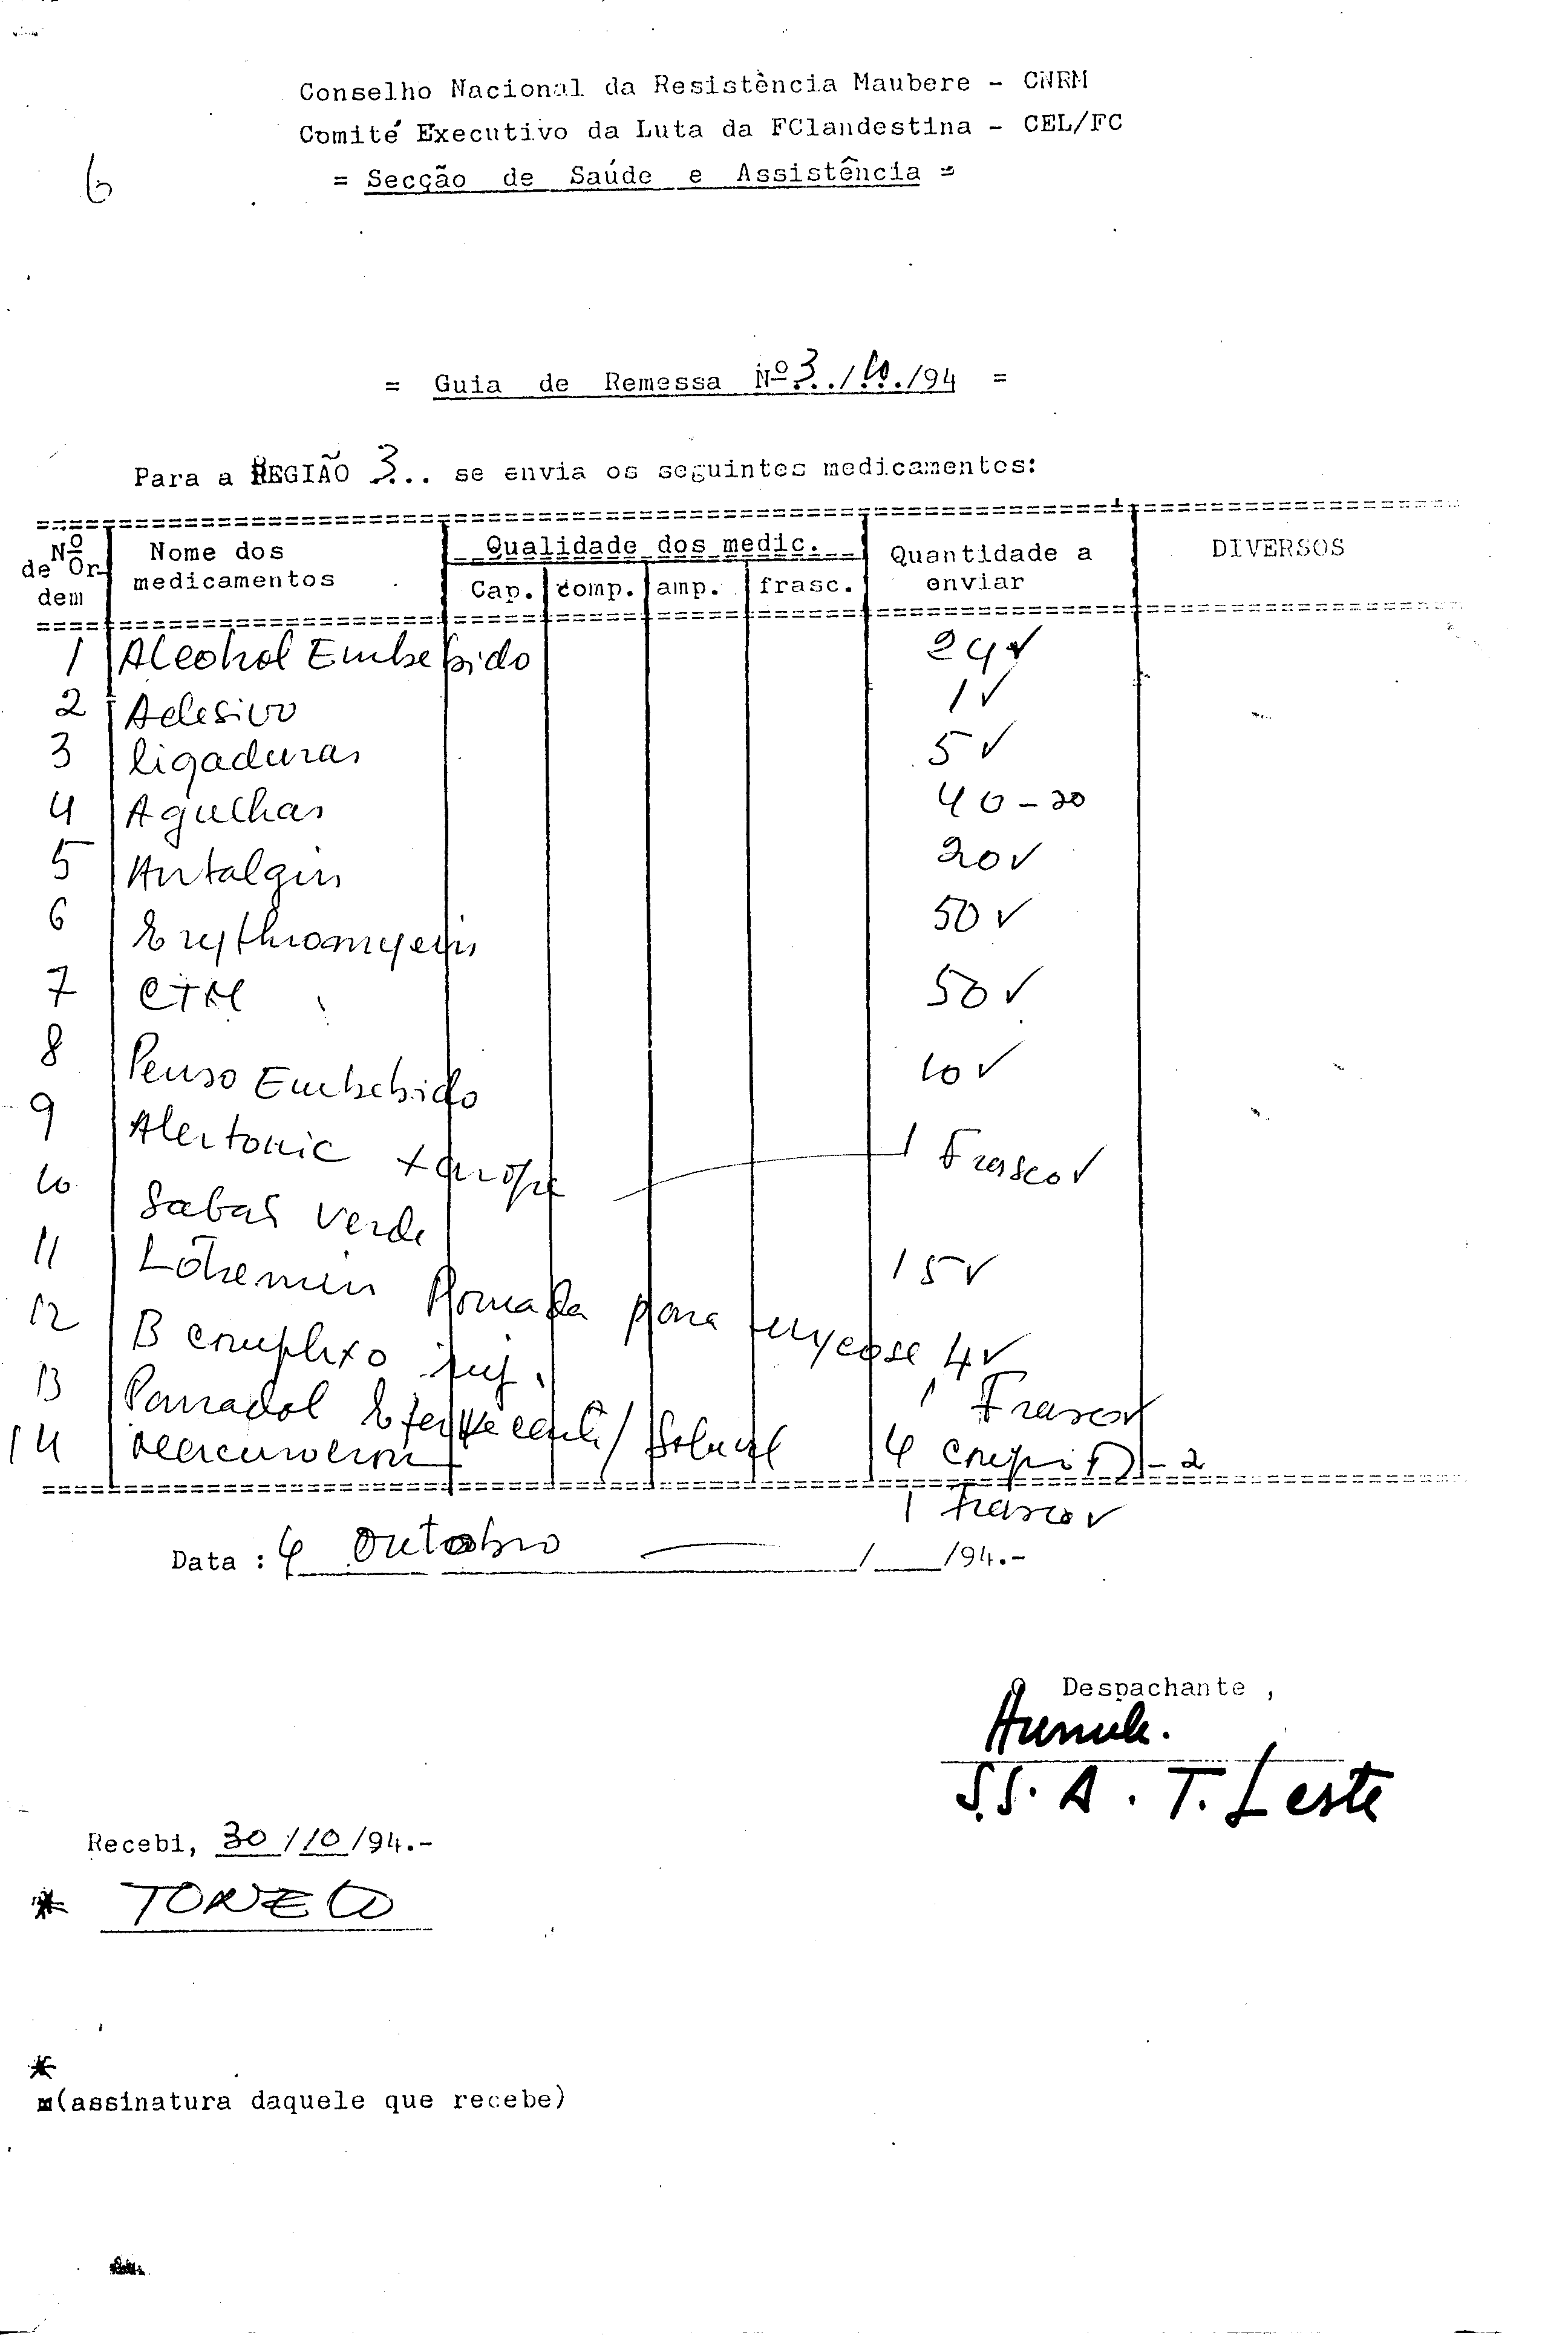 Conselho Nacional da Resistência Maubere - CNRM
Comité Executivo da Luta da FClandestina - CEL/FC
6
= Secção de Saúde e Assistência =
= Guia de Remessa Nº 3../10./94 =
Para a REGIÃO 3... se envia os seguintes medicamentos:
Nº de Ordem Nome dos medicamentos Qualidade dos medic. Quantidade a enviar DIVERSOS
Cap. comp. amp. frasc.
1 Alcohol Embebido 24 ✓
2 Adesivo 1 ✓
3 ligaduras 5 ✓
4 Agulhas 40 - 20
5 Antalgin 20 ✓
6 Erythromycin 50 ✓
7 CTM 50 ✓
8 Penso Embebido 10 ✓
9 Alertonic xarope 1 Frasco ✓
10 Sabas verde 15 ✓
11 Lotremin Pomada para mycose 4 ✓
12 B complexo inj. 1 Frasco ✓
13 Panadol /Soluvel 4 - 2
14 1 Frasco ✓
Data : 4 Outobro / /94.-
Despachante ,
S.S. A. T. Leste
Recebi, 30/10/94.-
*
*
(assinatura daquele que recebe)